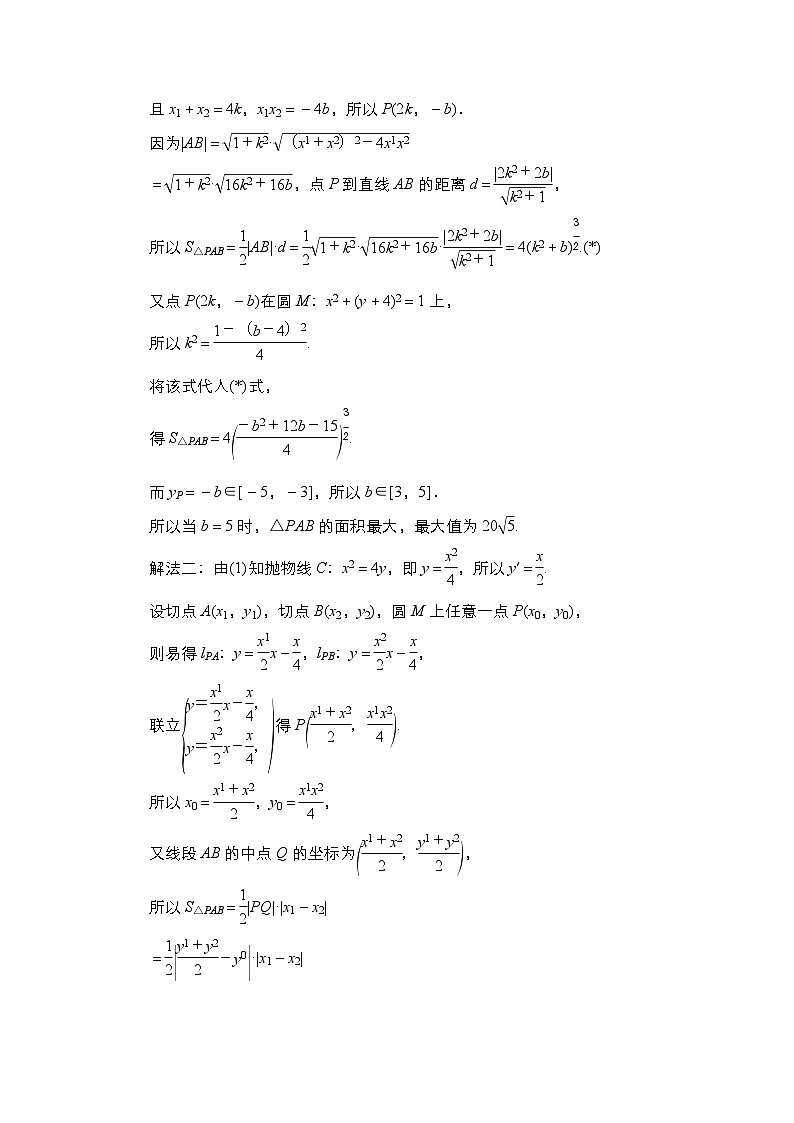 且 x₁+x₂=4k，x₁x₂=－4b，所以 P(2k，－b)．
因为|AB|=√(1+k²)·√(（x1+x2）²－4x1x2)
=√(1+k²)·√(16k²+16b)，点 P 到直线 AB 的距离 d=|2k²+2b|/√(k²+1)，
所以 S△PAB=1/2|AB|·d=1/2√(1+k²)·√(16k²+16b)·|2k²+2b|/√(k²+1)=4(k²+b)^(3/2).(*)
又点 P(2k，－b)在圆 M：x²+(y+4)²=1 上，
所以 k²=(1－（b－4）²)/4.
将该式代人(*)式，
得 S△PAB=4((－b²+12b－15)/4)^(3/2).
而 yP=－b∈[－5，－3]，所以 b∈[3，5]．
所以当 b=5 时，△PAB 的面积最大，最大值为 20√5.
解法二：由(1)知抛物线 C：x²=4y，即 y=x²/4，所以 y′=x/2.
设切点 A(x₁，y₁)，切点 B(x₂，y₂)，圆 M 上任意一点 P(x₀，y₀)，
则易得 lPA：y=x1/2 x－x/4，lPB：y=x2/2 x－x/4，
联立{y=x1/2 x－x/4，y=x2/2 x－x/4，)得 P((x1+x2)/2，x1x2/4).
所以 x₀=(x1+x2)/2，y₀=x1x2/4，
又线段 AB 的中点 Q 的坐标为((x1+x2)/2，(y1+y2)/2)，
所以 S△PAB=1/2|PQ|·|x₁－x₂|
=1/2|(y1+y2)/2－y0|·|x₁－x₂|